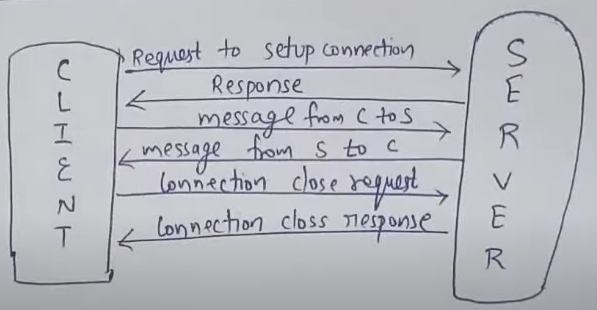 CLIENT
Request to setup connection
Response
message from C to S
message from S to C
Connection close request
Connection closs response
SERVER